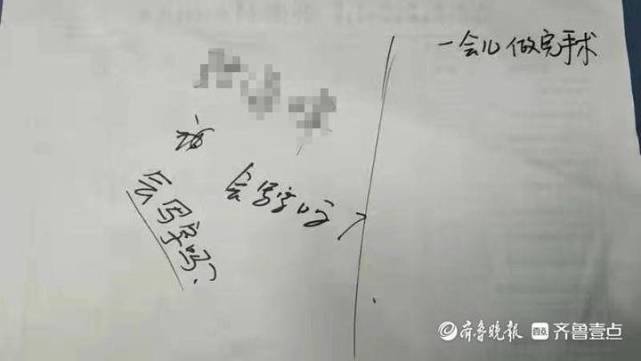 一会儿做完手术
会写字吗?
会写字吗?
齐鲁晚报 齐鲁壹点